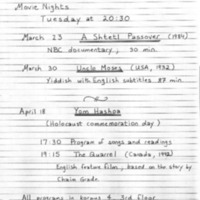 Movie Nights
Tuesday at 20:30
March 23 A Shtetl Passover (1984)
NBC documentary, 30 min.
March 30 Uncle Moses (USA, 1932)
Yiddish with English subtitles 87 min
April 18 Yom Hashoa
(Holocaust commemoration day)
17:30 Program of songs and readings
19:15 The Quarrel (Canada, 1992)
English feature film, based on the story by
Chaim Grade.
All programs in korpus 4, 3rd floor